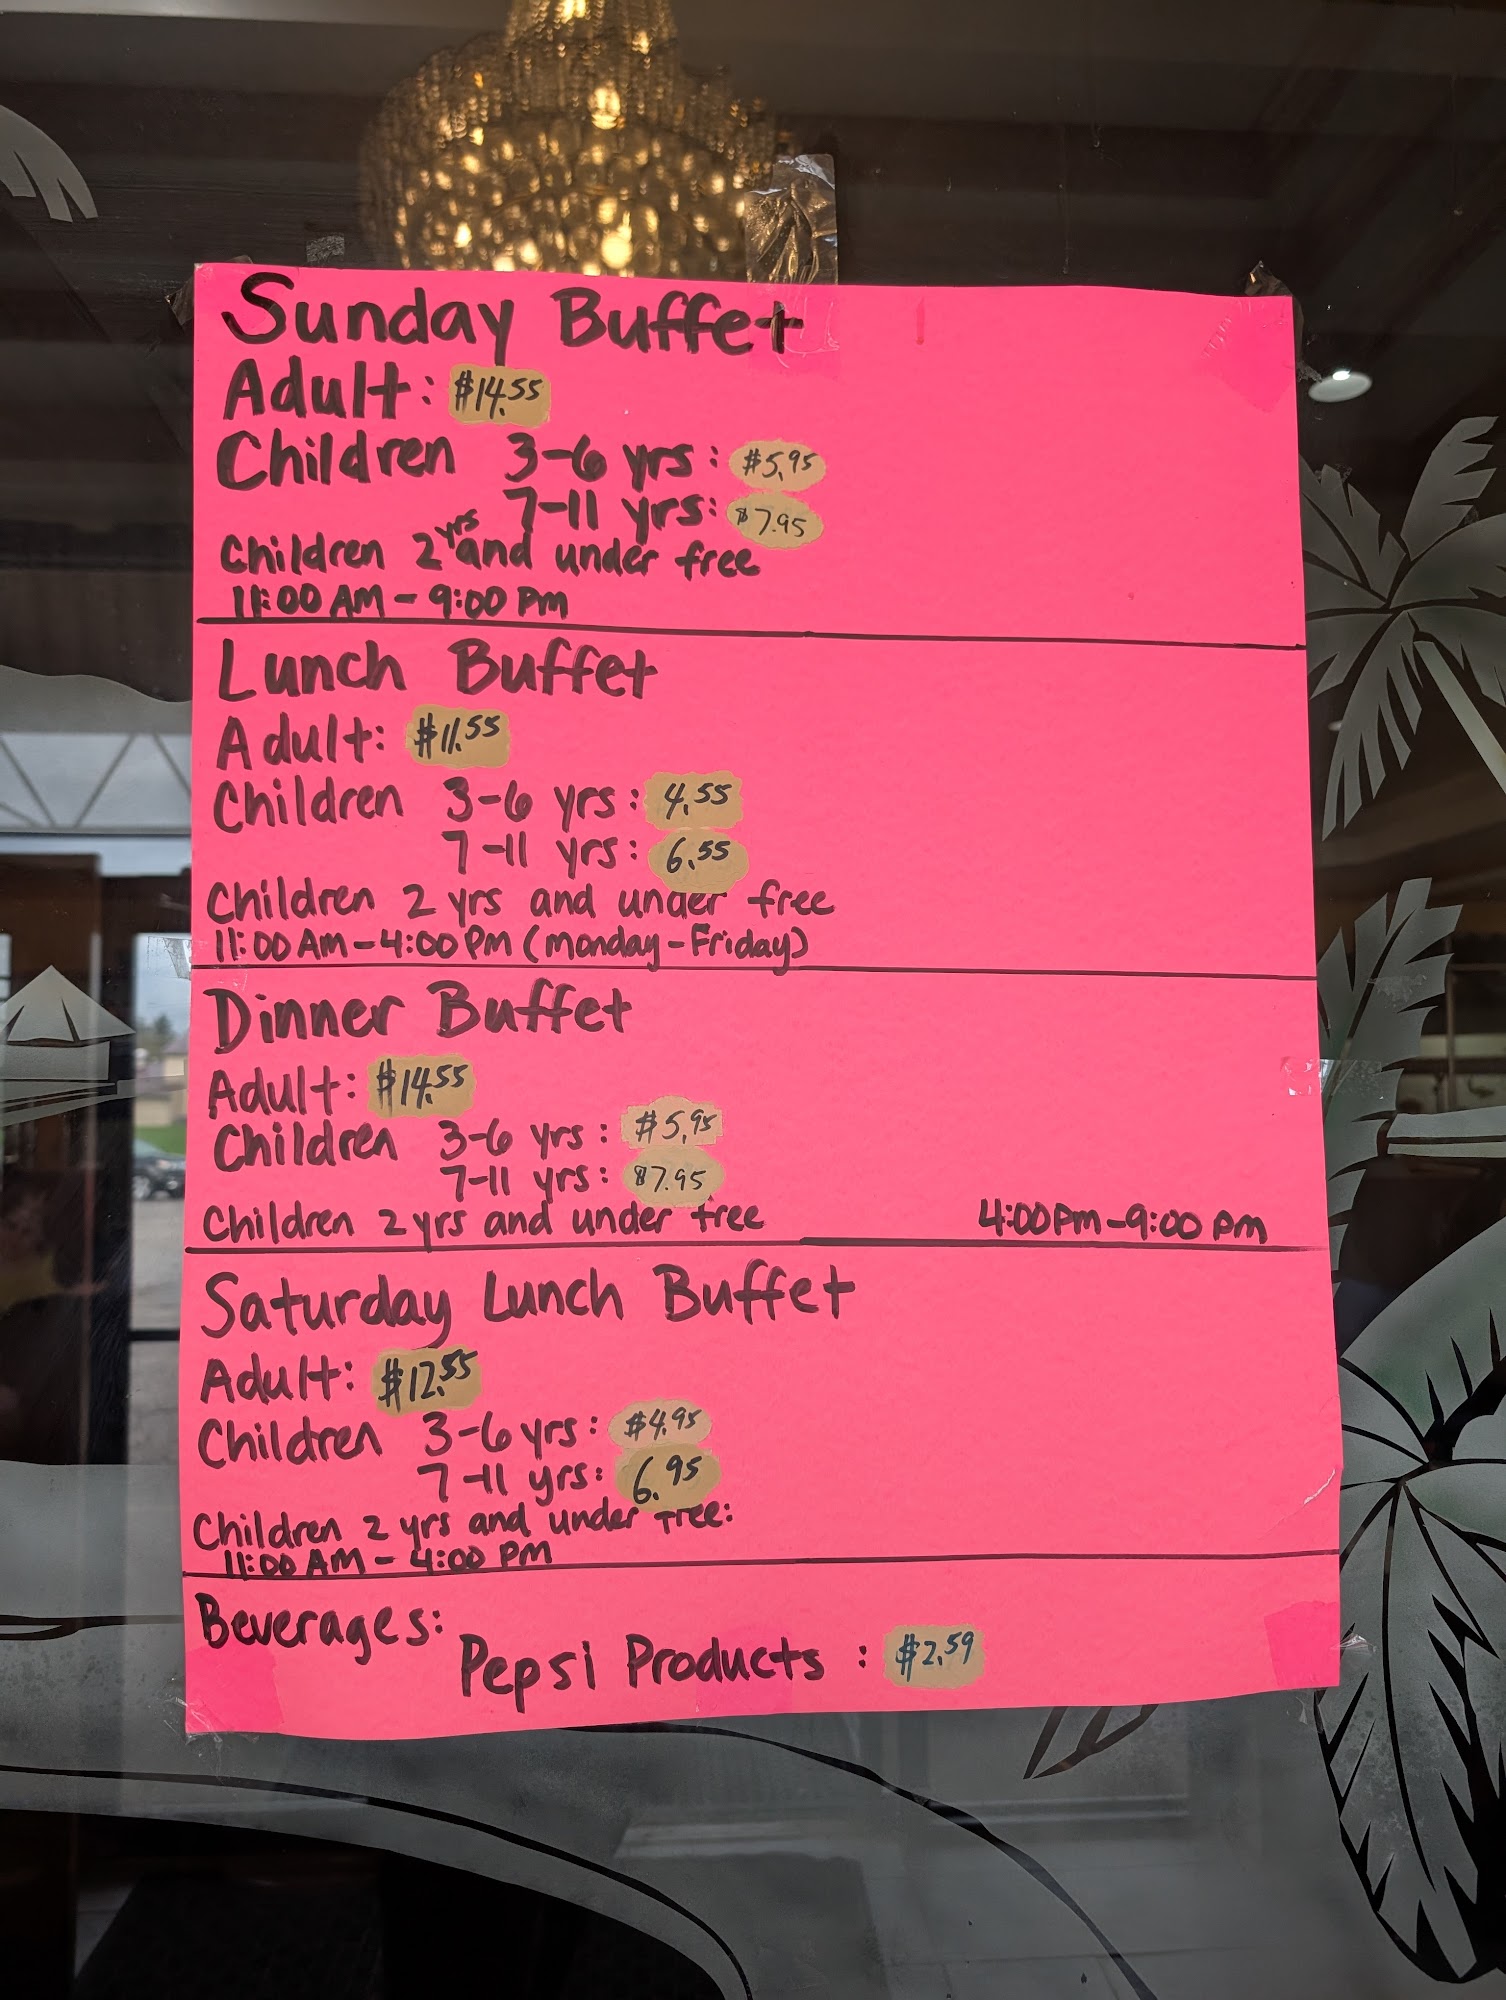 Sunday Buffet
Adult: $14.55
Children 3-6 yrs: $5.95
7-11 yrs: $7.95
Children 2 yrs and under free
11:00 AM - 9:00 PM
Lunch Buffet
Adult: $11.55
Children 3-6 yrs: 4.55
7-11 yrs: 6.55
Children 2 yrs and under free
11:00 AM - 4:00 PM (Monday-Friday)
Dinner Buffet
Adult: $14.55
Children 3-6 yrs: $5.95
7-11 yrs: $7.95
Children 2 yrs and under free 4:00 PM-9:00 PM
Saturday Lunch Buffet
Adult: $12.55
Children 3-6 yrs: $4.95
7-11 yrs: 6.95
Children 2 yrs and under free:
11:00 AM - 4:00 PM
Beverages:
Pepsi Products : $2.59